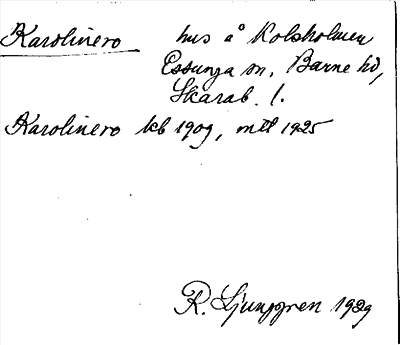 Karolinero hus å Kolsholmen
Essunga sn, Barne hd,
Skarab. l.
Karolinero kb 1909, mtl 1925
R. Ljunggren 1929